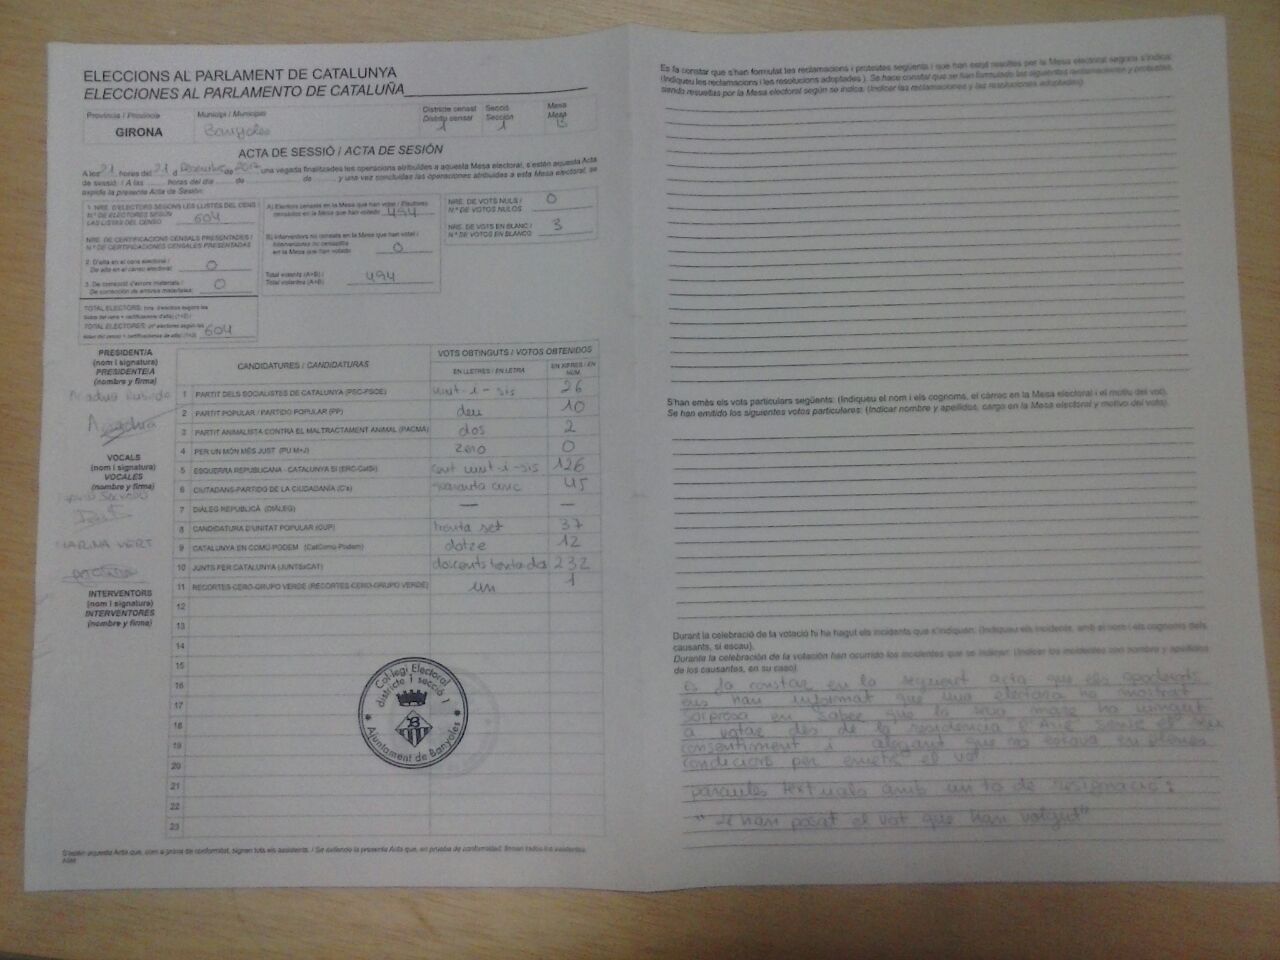 ELECCIONS AL PARLAMENT DE CATALUNYA
ELECCIONES AL PARLAMENTO DE CATALUÑA
Província / Provincia
GIRONA
Municipi / Municipio
Banyoles
Districte censal
Distrito censal
1
Secció
Sección
1
Mesa
Mesa
B
ACTA DE SESSIÓ / ACTA DE SESIÓN
A les 21 hores del 21 d Desembre de 2017 una vegada finalitzades les operacions atribuïdes a aquesta Mesa electoral, s'estén aquesta Acta
de sessió. / A las ...... horas del día ...... de ...... de ...... y una vez concluidas las operaciones atribuidas a esta Mesa electoral, se
expide la presente Acta de Sesión.
1. NRE. D'ELECTORS SEGONS LES LLISTES DEL CENS /
N.º DE ELECTORES SEGÚN
LAS LISTAS DEL CENSO 604
NRE. DE CERTIFICACIONS CENSALS PRESENTADES /
N.º DE CERTIFICACIONES CENSALES PRESENTADAS
2. D'alta en el cens electoral /
De alta en el censo electoral: 0
3. De correcció d'errors materials /
De corrección de errores materiales: 0
TOTAL ELECTORS:
TOTAL ELECTORES: 604
A) Electors censats en la Mesa que han votat / Electores
censados en la Mesa que han votado 494
B) Interventors no censats en la Mesa que han votat /
Interventores no censados
en la Mesa que han votado 0
Total votants (A+B) /
Total votantes (A+B) 494
NRE. DE VOTS NULS /
N.º DE VOTOS NULOS 0
NRE. DE VOTS EN BLANC /
N.º DE VOTOS EN BLANCO 3
PRESIDENT/A
(nom i signatura)
PRESIDENTE/A
(nombre y firma)
VOCALS
(nom i signatura)
VOCALES
(nombre y firma)
MARINA VERT
INTERVENTORS
(nom i signatura)
INTERVENTORES
(nombre y firma)
CANDIDATURES / CANDIDATURAS
VOTS OBTINGUTS / VOTOS OBTENIDOS
EN LLETRES / EN LETRA
EN XIFRES / EN NÚM.
1 PARTIT DELS SOCIALISTES DE CATALUNYA (PSC-PSOE) vint-i-sis 26
2 PARTIT POPULAR / PARTIDO POPULAR (PP) deu 10
3 PARTIT ANIMALISTA CONTRA EL MALTRACTAMENT ANIMAL (PACMA) dos 2
4 PER UN MÓN MÉS JUST (PUM+J) zero 0
5 ESQUERRA REPUBLICANA - CATALUNYA SÍ (ERC-CatSí) cent vint-i-sis 126
6 CIUTADANS-PARTIDO DE LA CIUDADANÍA (C's) quaranta cinc 45
7 DIÀLEG REPUBLICÀ (DIÀLEG) — —
8 CANDIDATURA D'UNITAT POPULAR (CUP) trenta set 37
9 CATALUNYA EN COMÚ-PODEM (CatComú-Podem) dotze 12
10 JUNTS PER CATALUNYA (JUNTSxCAT) doscents trentados 232
11 RECORTES-CERO-GRUPO VERDE (RECORTES-CERO-GRUPO VERDE) un 1
12
13
14
15
16
17
18
19
20
21
22
23
Col·legi Electoral
districte 1 secció 1
Ajuntament de Banyoles
S'estén aquesta Acta que, com a prova de conformitat, signen tots els assistents. / Se extiende la presente Acta que, en prueba de conformidad, firman todos los asistentes.
Es fa constar que s'han formulat les reclamacions i protestes següents i que han estat resoltes per la Mesa electoral segons s'indica:
(Indiqueu les reclamacions i les resolucions adoptades). Se hace constar que se han formulado las siguientes reclamaciones y protestas,
siendo resueltas por la Mesa electoral según se indica: (Indicar las reclamaciones y las resoluciones adoptadas).
S'han emès els vots particulars següents: (Indiqueu el nom i els cognoms, el càrrec en la Mesa electoral i el motiu del vot).
Se han emitido los siguientes votos particulares: (Indicar nombre y apellidos, cargo en la Mesa electoral y motivo del voto).
Durant la celebració de la votació hi ha hagut els incidents que s'indiquen: (Indiqueu els incidents, amb el nom i els cognoms dels
causants, si escau).
Durante la celebración de la votación han ocurrido los incidentes que se indican: (Indicar los incidentes con nombre y apellidos
de los causantes, en su caso).
Es fa constar en la següent acta que els apoderats
ens han informat que una electora ha mostrat
sorpresa en saber que la seva mare ha vingut
a votar des de la residència sense el seu
consentiment i al·legant que no estava en plenes
condicions per emetre el vot
paraules textuals amb un to de resignació:
"Li han posat el vot que han volgut"